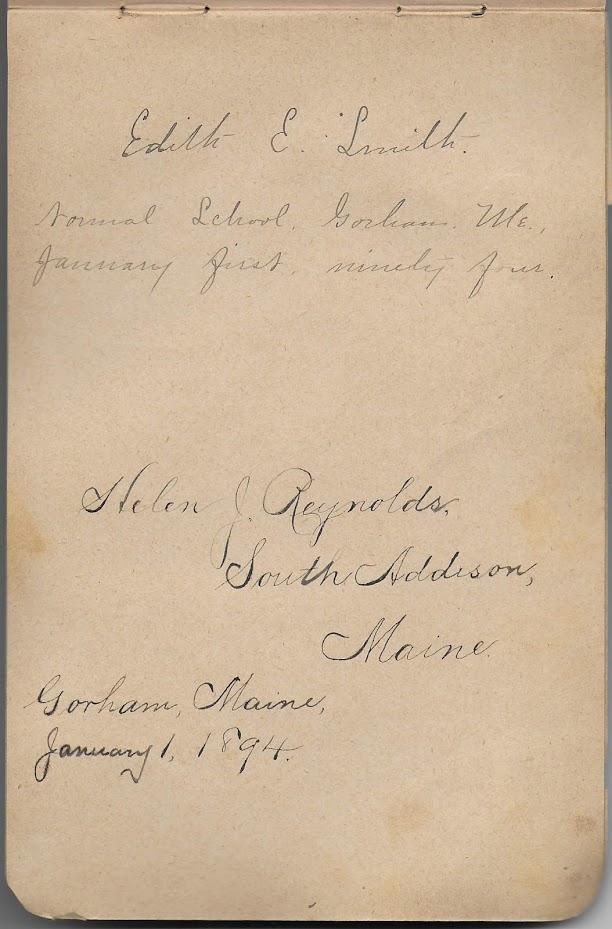 Edith E. Smith.
Normal School, Gorham, Me.,
January first, ninety four.
Helen J. Reynolds,
South Addison,
Maine.
Gorham, Maine,
January 1, 1894.